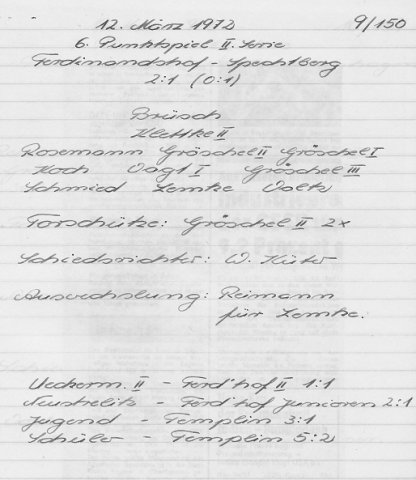 12. März 1972 9/150
6. Punktspiel II. Serie
Ferdinandshof - Spechtberg
2:1 (0:1)
Brüsch
Klettke II
Rosemann Gröschel II Gröschel I
Koch Vogt I Gröschel III
Schmied Lemke Voltz
Torschütze: Gröschel II 2x
Schiedsrichter: W. Küter
Auswechslung: Reimann
für Lemke.
Ueckerm. II - Ferd'hof II 1:1
Neustrelitz - Ferd'hof Junioren 2:1
Jugend - Templin 3:1
Schüler - Templin 5:2